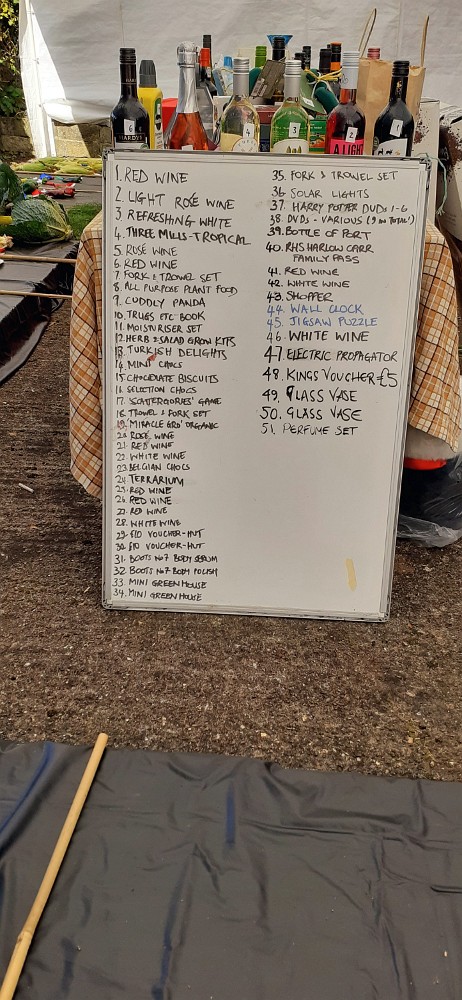 HARDYS
6
4
3
2
A LIGHT
1
1. RED WINE
2. LIGHT ROSÉ WINE
3. REFRESHING WHITE
4. THREE MILLS-TROPICAL
5. ROSÉ WINE
6. RED WINE
7. FORK & TROWEL SET
8. ALL PURPOSE PLANT FOOD
9. CUDDLY PANDA
10. TRUGS ETC BOOK
11. MOISTURISER SET
12. HERB & SALAD GROW KITS
13. TURKISH DELIGHTS
14. MINI CHOCS
15. CHOCOLATE BISCUITS
16. SELECTION CHOCS
17. 'SCATTERGORIES' GAME
18. TROWEL & FORK SET
19. 'MIRACLE GRO' ORGANIC
20. ROSÉ WINE
21. RED WINE
22. WHITE WINE
23. BELGIAN CHOCS
24. TERRARIUM
25. RED WINE
26. RED WINE
27. RED WINE
28. WHITE WINE
29. £10 VOUCHER-HUT
30. £10 VOUCHER-HUT
31. BOOTS No7 BODY SERUM
32. BOOTS No7 BODY POLISH
33. MINI GREENHOUSE
34. MINI GREENHOUSE
35. FORK & TROWEL SET
36. SOLAR LIGHTS
37. HARRY POTTER DVDS 1-6
38. DVDS - VARIOUS (9 IN TOTAL!)
39. BOTTLE OF PORT
40. RHS HARLOW CARR
FAMILY PASS
41. RED WINE
42. WHITE WINE
43. SHOPPER
44. WALL CLOCK
45. JIGSAW PUZZLE
46. WHITE WINE
47. ELECTRIC PROPAGATOR
48. KINGS VOUCHER £5
49. GLASS VASE
50. GLASS VASE
51. PERFUME SET